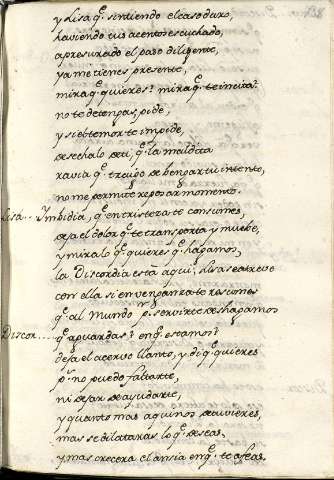 y Lisa q.̃ sintiendo el caso duro,
haviendo tus acentos escuchado,
apresurado el paso diligente,
ya me tienes presente,
mira q.̃ quieres? mira q.̃ te incita?
no te detengas, pide,
y si el temor te impide,
desechalo de ti, q.̃ la maldita
ravia q.̃ traigo de vengar tu intento,
no me permite reposar momento.
Lisa... Imbidia, q.̃ en tristeza te consumes,
deja el dolor q.̃ te transporta y muebe,
y míralo q.̃ quieres q.̃ hagamos,
la Discordia està aqui, Lisa se atreve
con ella si en venganza te resumes
q.̃ al Mundo p.r servirte deshagamos
Discor.... q.̃ aguardas? en q.̃ estamos?
deja el acervo llanto, y di q.̃ quieres
p.s no puedo faltarte,
ni dejar de ayudarte,
y quanto mas aqui nos detuvieres,
mas se dilatarà lo q.̃ deseas,
y mas crecerà el ansia en q.̃ te